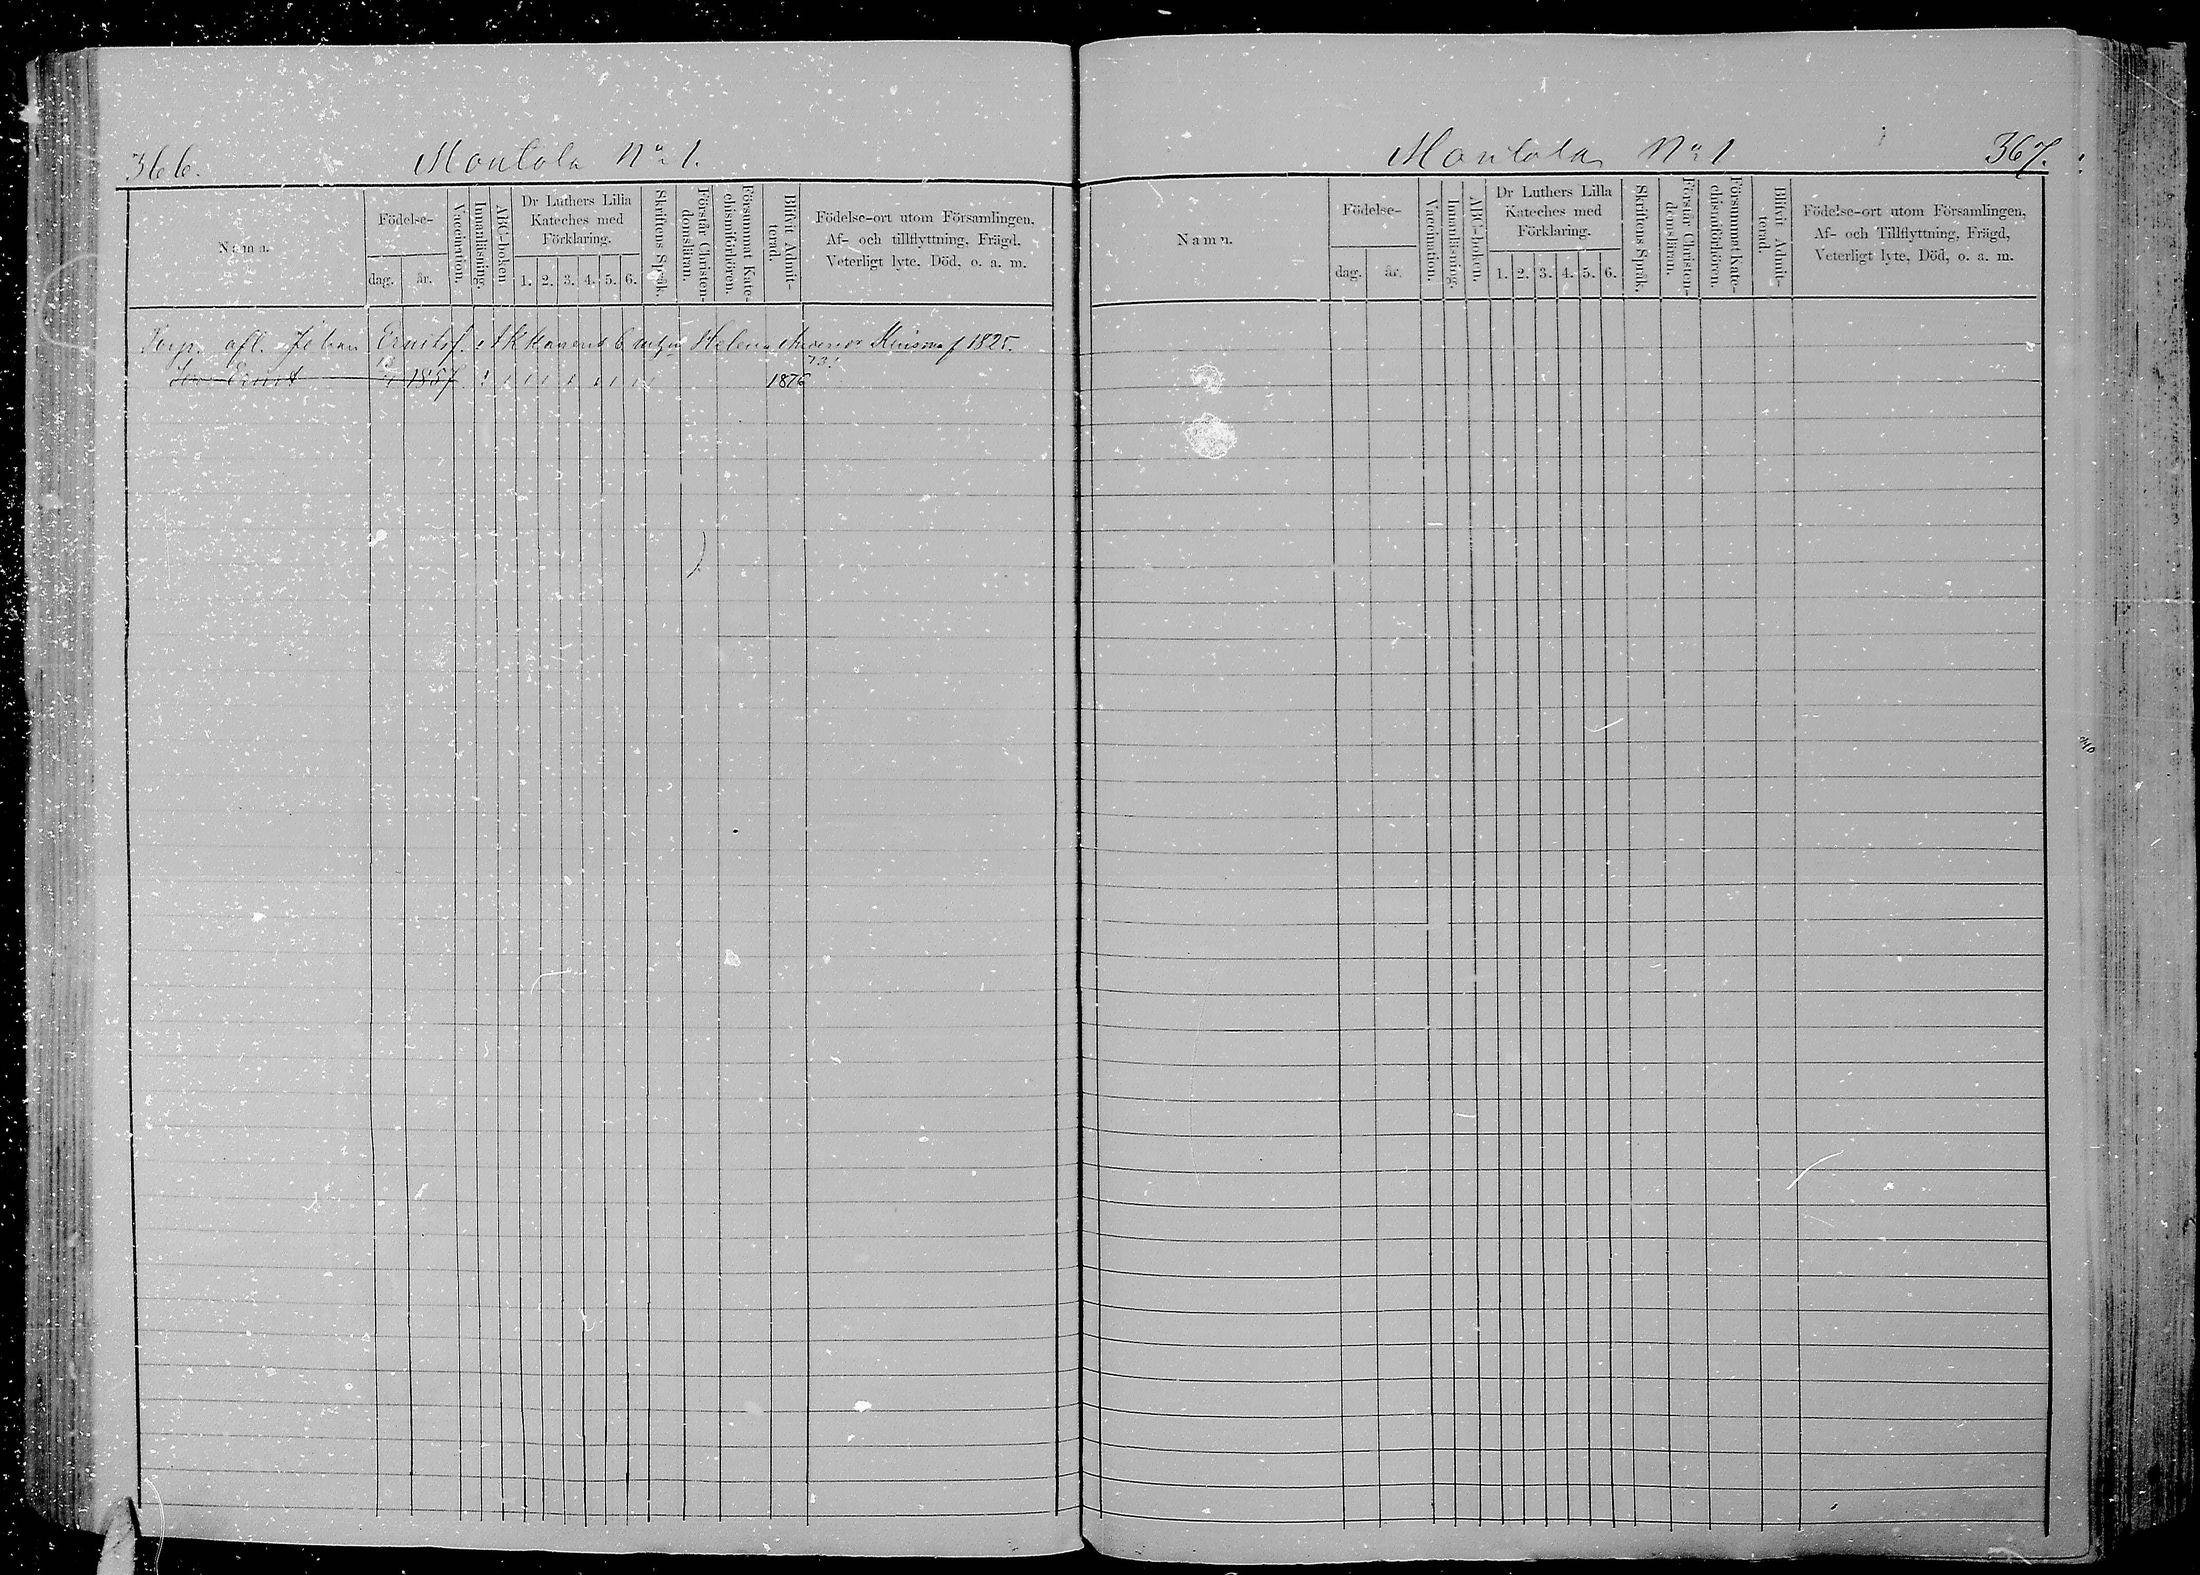 366. Montola No 1.
Namn.
Födelse-
dag. år.
Vaccination.
Innanläsning.
ABC-boken
Dr Luthers Lilla
Kateches med
Förklaring.
1. 2. 3. 4. 5. 6.
Skriftens Språk.
Förstår Christen-
domsläran.
Försummat Kate-
chismiförhören.
Blifvit Admit-
terad.
Födelse-ort utom Församlingen,
Af- och tillflyttning, Frägd,
Veterligt lyte, Död, o. a. m.
Torp. afl. Johan Ernstsf. Akkanens Helena f 1825.
73!
Ernst 1857. 1876
Montola No 1 367.
Namn.
Födelse-
dag. år.
Vaccination.
Innanläsning.
ABC-boken.
Dr Luthers Lilla
Kateches med
Förklaring.
1. 2. 3. 4. 5. 6.
Skriftens Språk.
Förstår Christen-
domsläran.
Försummat Kate-
chismiförhören.
Blifvit Admit-
terad.
Födelse-ort utom Församlingen,
Af- och Tillflyttning, Frägd,
Veterligt lyte, Död, o. a. m.